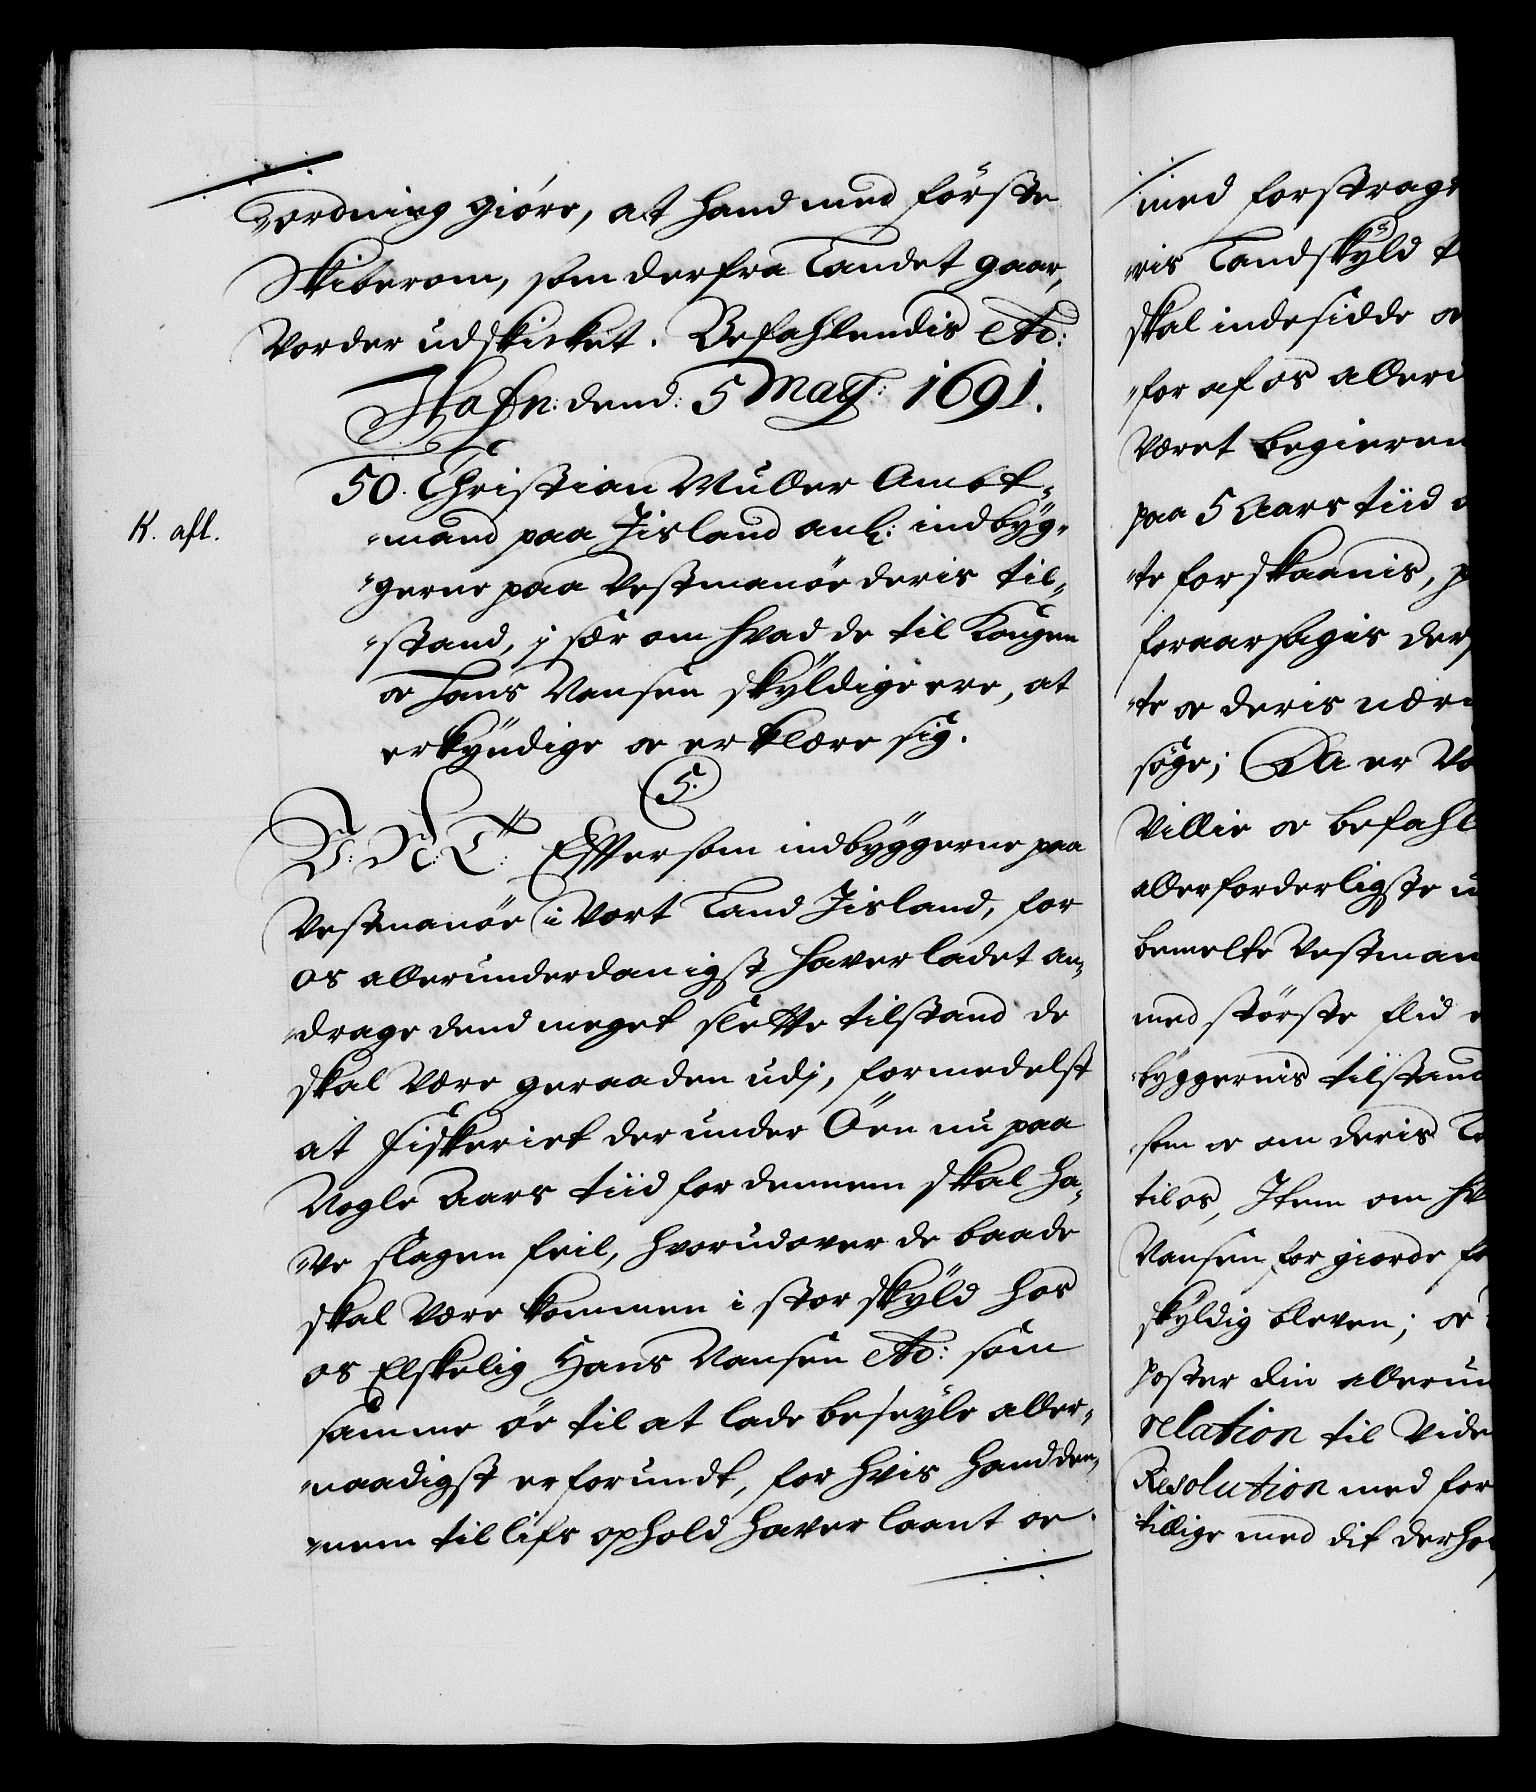 "ordning giöre, at hand med förste
Skiberom, som derfra Landet gaar,
Vorder udskicket. Befahlendis etc:
Hafn: dend: 5 Maij: 1691.
50. Christian Muller Ambt"
"mand paa Jisland anl: indbyg"
"gerne paa Vestmanöe deris til"
"stand, j sær om hvad de til Kongen
K. afl.
oc Hans Nansen skyldige ere, at
erkyndige oc erklære sig.
5.
Effter som indbyggerne paa
Vestmanöe i Vort Land Jisland, for
os allerunderdanigst haver ladet an"
"drage dend meget slette tilstand de
skal Være geraaden udj, formedelst
at fiskeriet der under Öen nu paa
Nogle Aars tiid for dennem skal ha"
"ve slagen feil, hvorudover de baade
skal Være kommen i stor skyld hos
os Elskelig Hans Nansen etc: som
samme öe til at lade beseyle aller"
"naadigst er forundt, for hvis hand den"
"nem til lifs ophold haver laant oc
med forstragt
"ris Landskyld t
skal indesidde oc
"for af os allern
Været begieren
paa 5 Aars tiid
"te forskaanis, p
foraarsagis der
"te oc deris nær
söge; Da er Vo
Villie oc befahl
allerforderligste u
bemelte Vestman
med störste flid
"byggernis tilstand
som oc om deris La
til os, Item om hv
Nansen for giorde fo
skyldig bleven; oc
poster din allerun
relation til Vide
Resolution med for
tillige med dit derho